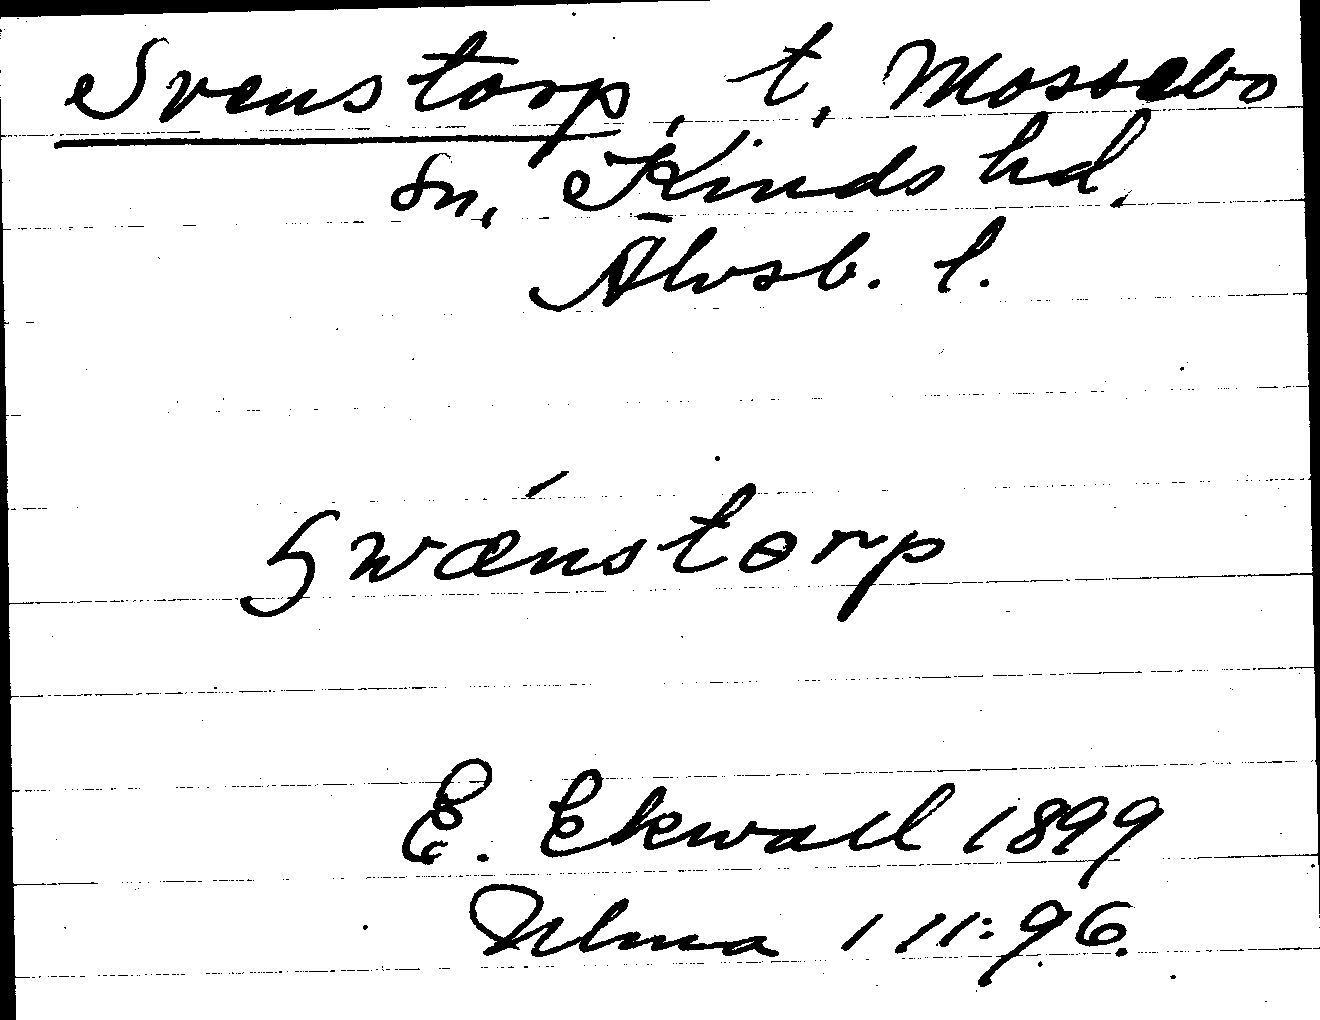 Svenstorp, t. Mossebo
sn, Kinds hd.
Älvsb. l.
Swǽnstorp
E. Ekwall 1899
Ulma 111:96.